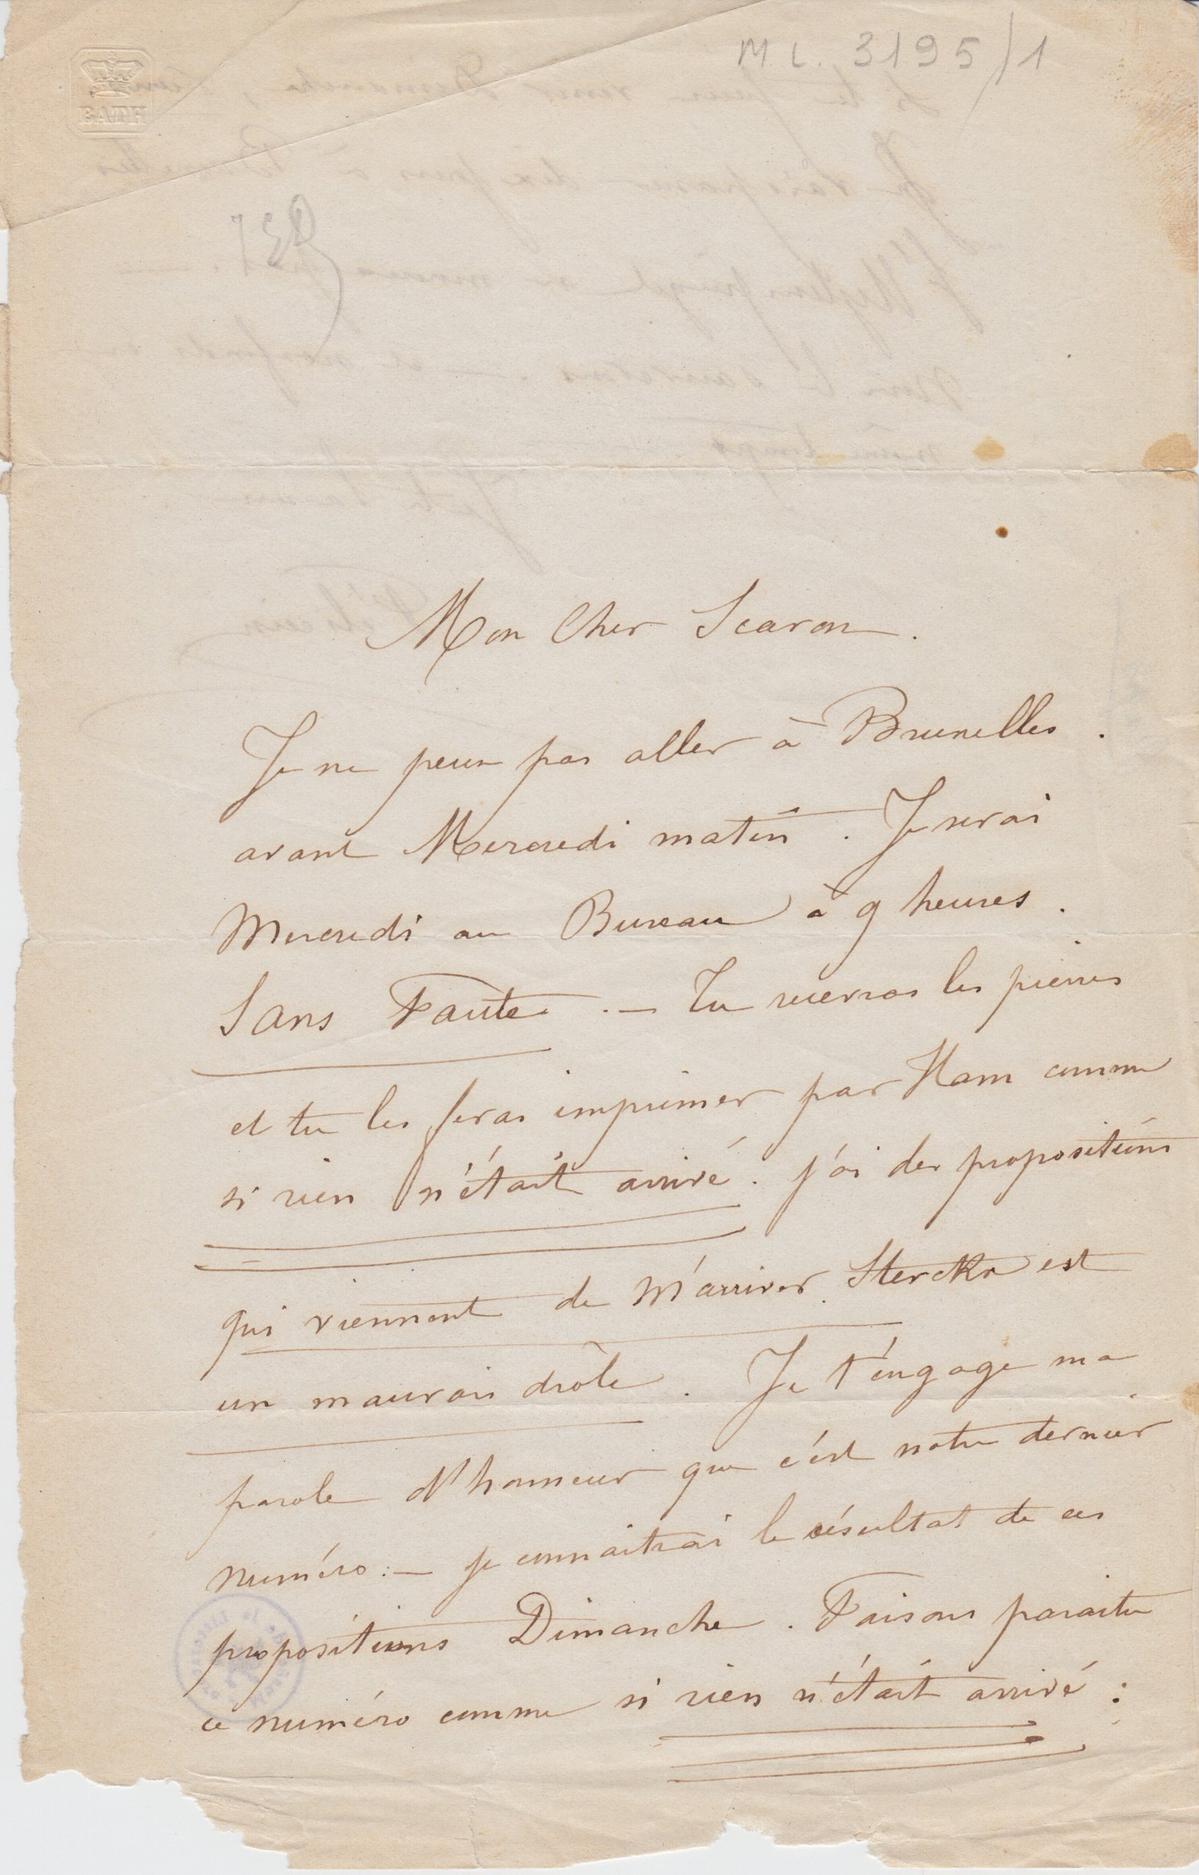 M L. 3195/1
BATH
Mon Cher Scaron.
Je ne peux pas aller à Bruxelles.
avant Mercredi matin. Je serai
Mercredi au Bureau à 9 heures.
Sans Faute. — Tu recevras les pierres
et tu les feras imprimer par Ham comme
si rien n'était arrivé. j'ai des propositions
qui viennent de M'arriver. Sterckx est
un mauvais drôle. Je t'engage ma
parole d'honneur que c'est notre dernier
numéro: — je connaitrai le résultat de ces
propositions Dimanche. Faisons paraitre
ce numéro comme si rien n'était arrivé: